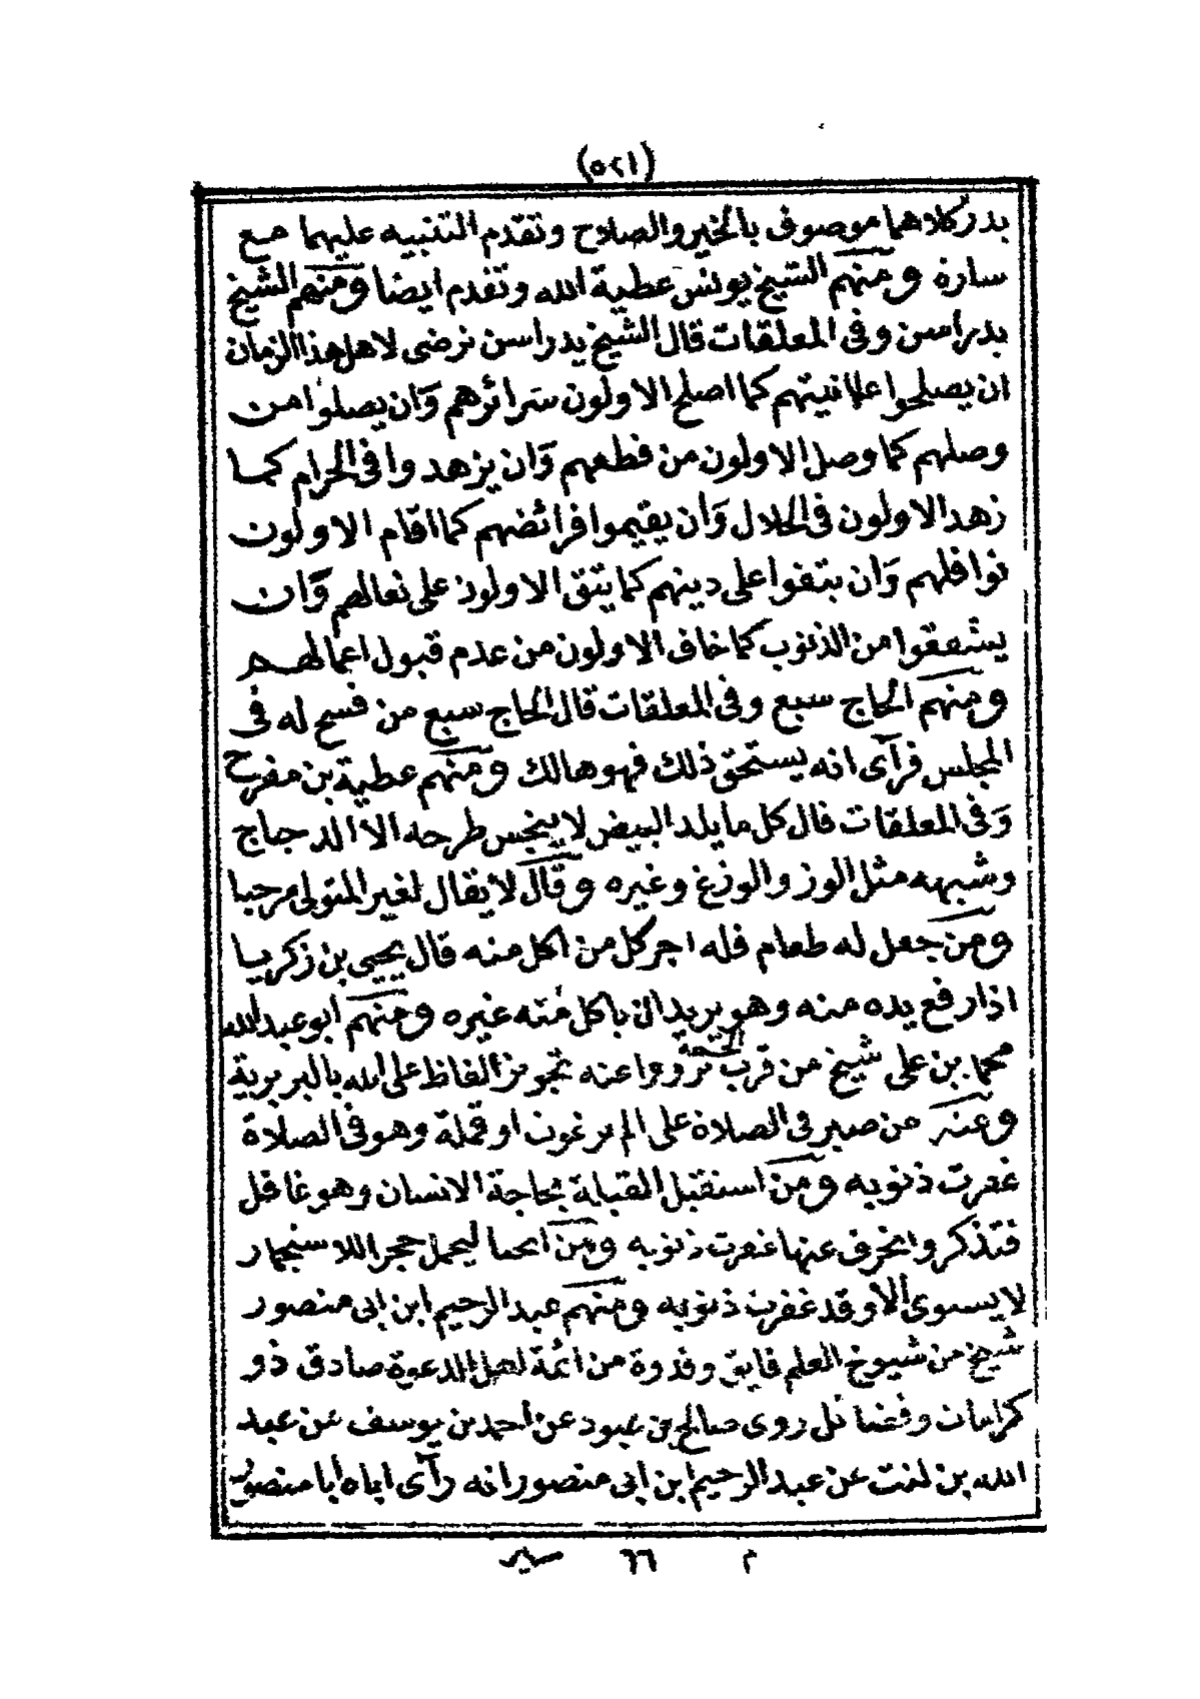 (٥٢١)
بدر كلاهما موصوف بالخير والصلاح وتقدم التنبيه عليهما مع
سارة ومنهم الشيخ يونس عطية الله وتقدم ايضا ومنهم الشيخ
يدراسن وفى المعلقات قال الشيخ يدراسن نرضى لاهل هذا الزمان
ان يصلحوا علانيتهم كما اصلح الاولون سرائرهم وان يصلوا من
وصلهم كما وصل الاولون من قطعهم وان يزهدوا فى الحرام كما
زهد الاولون فى الحلال وان يقيموا فرائضهم كما اقام الاولون
نوافلهم وان يتقوا على دينهم كما يتق الاولون على نعالهم وان
يشفقوا من الذنوب كما خاف الاولون من عدم قبول اعمالهم
ومنهم الحاج سبع وفى المعلقات قال الحاج سبع من فسح له فى
المجلس فرآى انه يستحق ذلك فهو هالك ومنهم عطية بن مفرح
وفى المعلقات قال كل ما يلد البيض لا ينجس طرحه الا الدجاج
وشبهه مثل الوز والوزغ وغيره وقال لا يقال لغير المتولى مرحبا
ومن جعل له طعام فله اجر كل من اكل منه قال يحيى بن زكريا
اذا رفع يده منه وهو يريد ان ياكل منه غيره ومنهم ابو عبد الله
محمد بن على شيخ من قرب الختمة رووا عنه تجويز الفاظ على الله بالبربرية
وعنه من صبر فى الصلاة على الم برغوث او قملة وهو فى الصلاة
غفرت ذنوبه ومن استقبل القبلة بحاجة الانسان وهو غافل
فتذكر وانحرف عنها غفرت ذنوبه ومن ليحمل حجرا للاستجمار
لا يستوى الا وقد غفرت ذنوبه ومنهم عبد الرحيم ابن ابى منصور
شيخ من شيوخ العلم فايق وقدوة من ائمة اهل الدعوة صادق ذو
كرامات وفضائل روى صالح بن عبود عن احمد بن يوسف عن عبد
الله بن لنت عن عبد الرحيم ابن ابى منصور انه رآى اباه ابا منصور
م ٦٦ سير